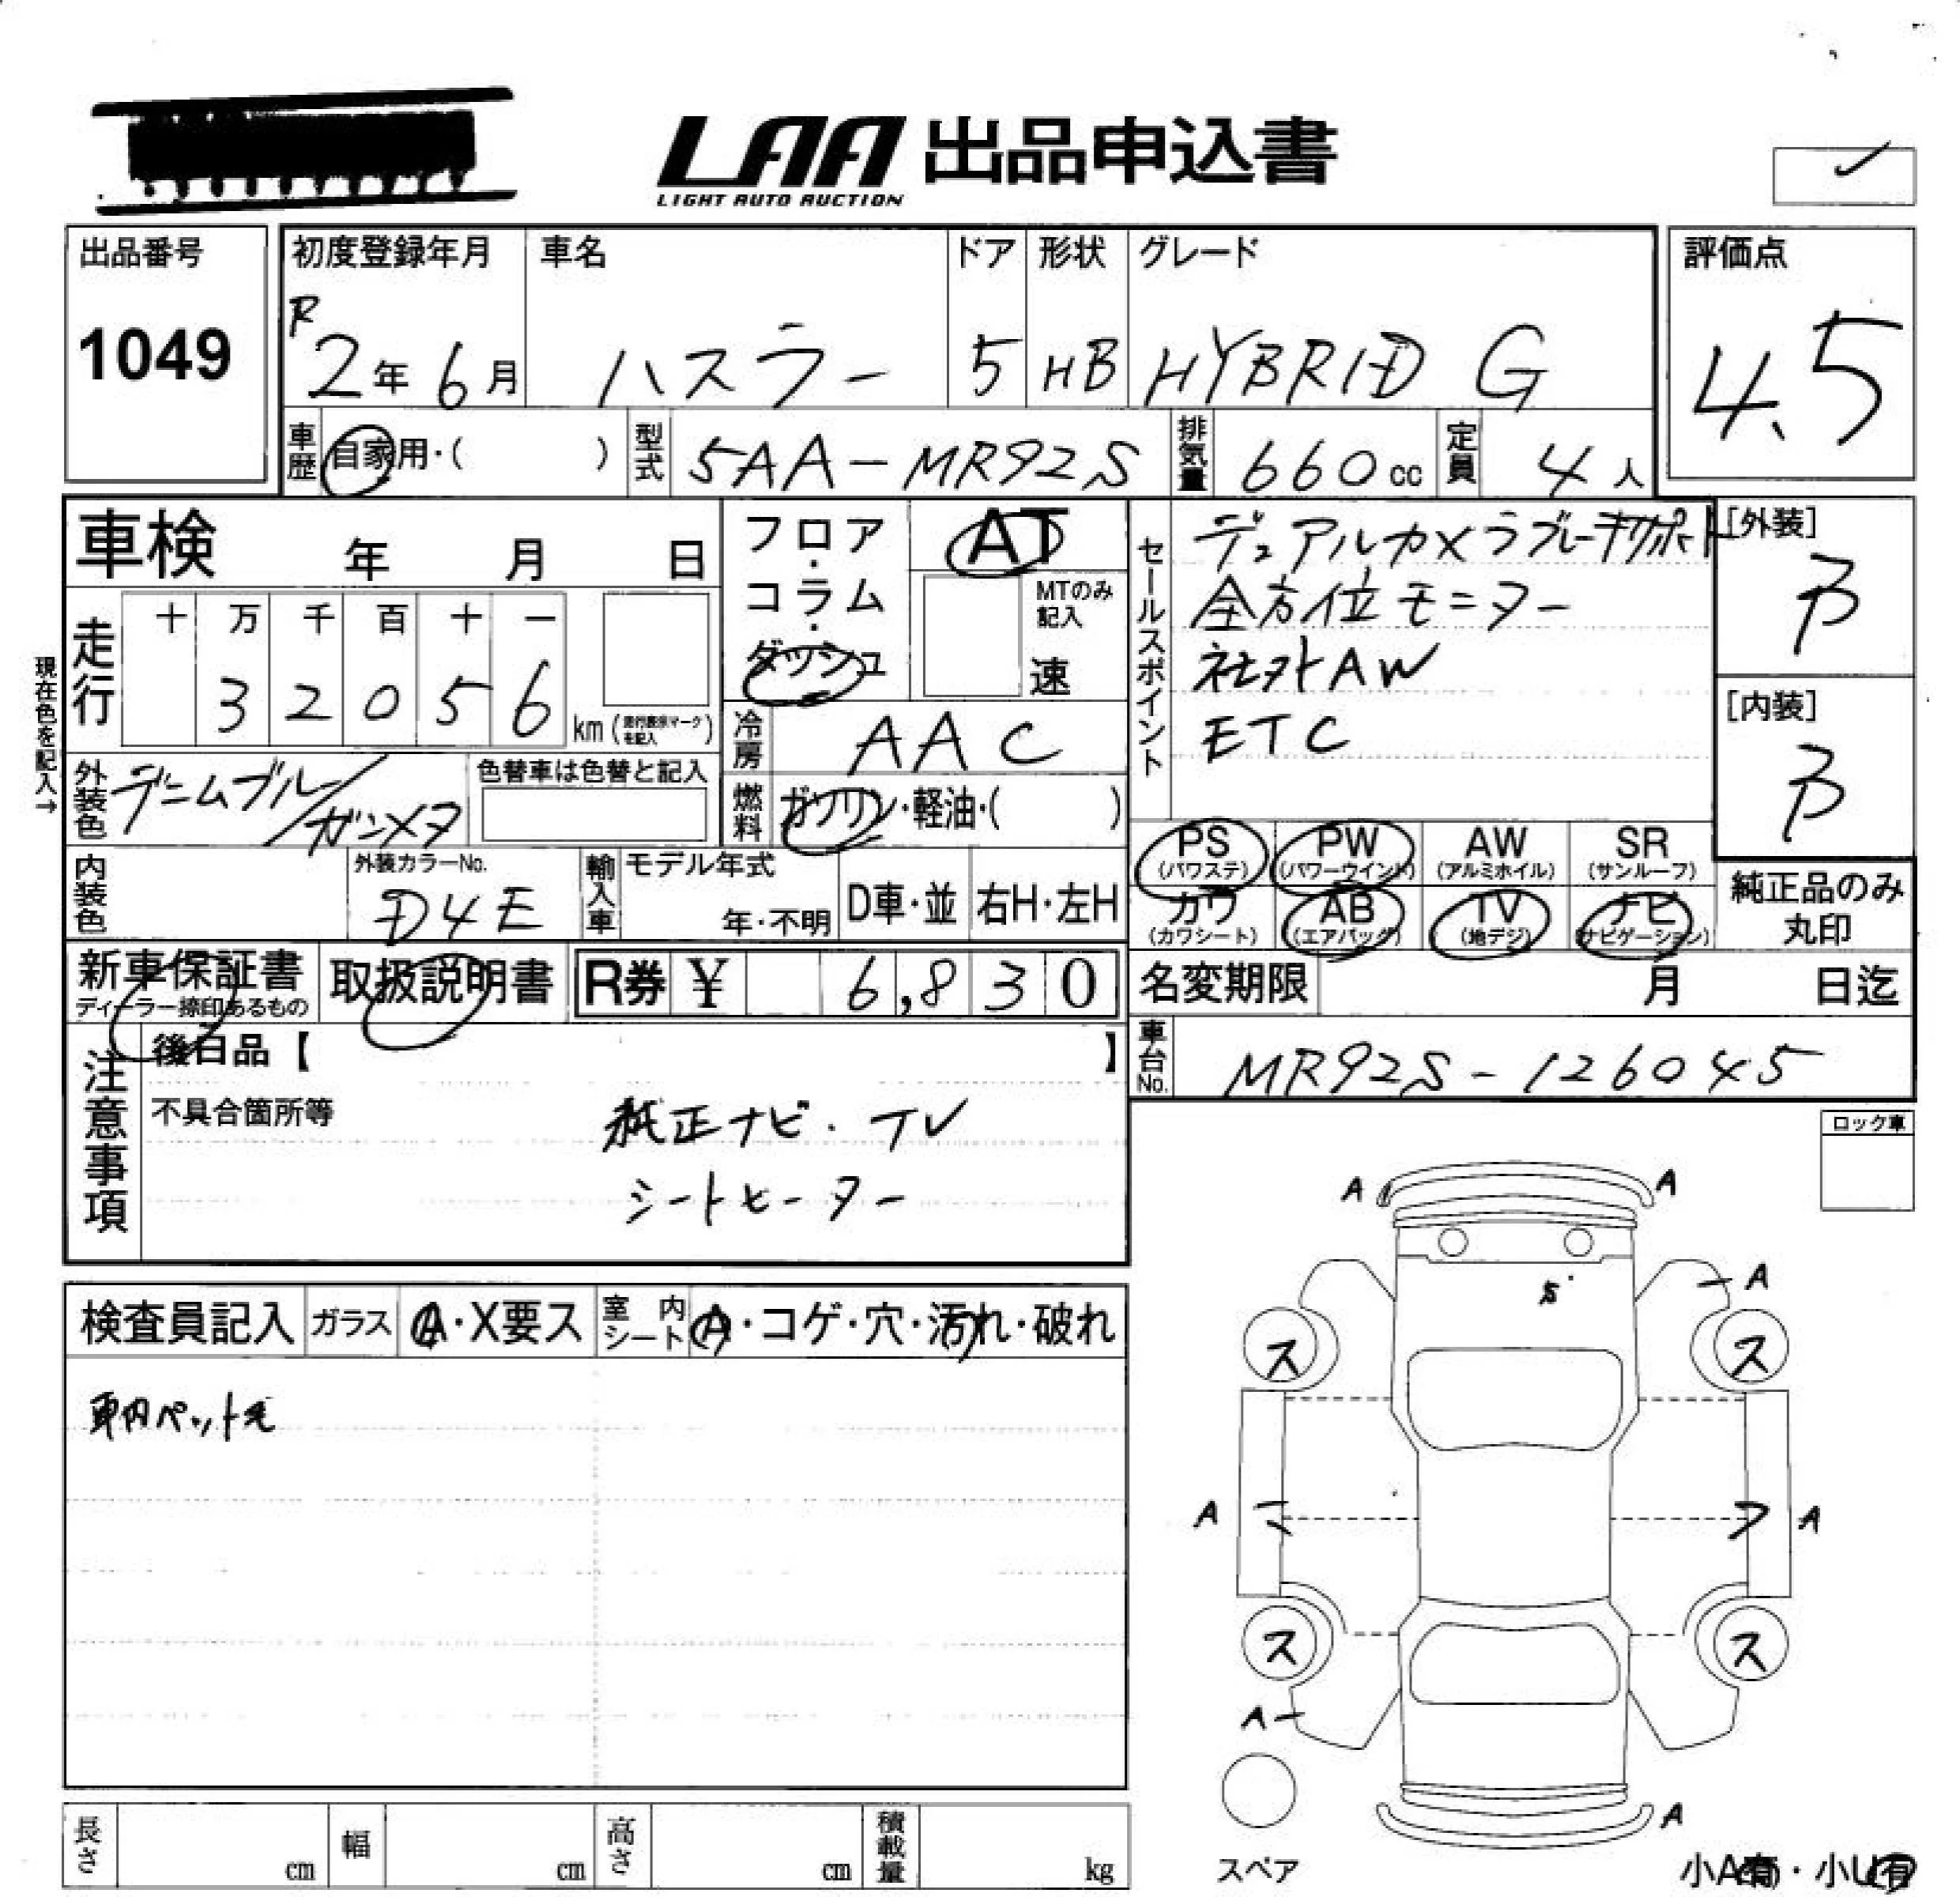 LAA 出品申込書
LIGHT AUTO AUCTION
出品番号
1049
初度登録年月
R
2年 6月
車名
ハスラー
ドア
5
形状
HB
グレード
HYBRID G
評価点
4.5
車歴
自家用・( )
型式
5AA-MR92S
排気量
660cc
定員
4人
車検 年 月 日
現在色を記入→
走行
十 万 千 百 十 一
3 2 0 5 6
km(走行表示マークを記入)
フロア・コラム・ダッシュ
AT
MTのみ記入
速
冷房
AAC
燃料
ガソリン・軽油・( )
セールスポイント
デュアルカメラブレーキサポート
全方位モニター
社外AW
ETC
[外装]
B
[内装]
B
外装色
デニムブルー/ガンメタ
色替車は色替と記入
内装色
外装カラーNo.
D4E
輸入車
モデル年式
年・不明
D車・並
右H・左H
PS
(パワステ)
PW
(パワーウインド)
AW
(アルミホイル)
SR
(サンルーフ)
カワ
(カワシート)
AB
(エアバッグ)
TV
(地デジ)
ナビ
(ナビゲーション)
純正品のみ
丸印
新車保証書
ディーラー捺印あるもの
取扱説明書
R券 ¥ 6,830
名変期限 月 日迄
車台No.
MR92S-126045
注意事項
後日品【 】
不具合箇所等
純正ナビ・TV
シートヒーター
ロック車
検査員記入
ガラス
A・X要ス
室内シート
A・コゲ・穴・汚れ・破れ
車内ペット毛
A A
A
ス ス
A A
ス ス
A
A
スペア
小A有・小U有
長さ cm
幅 cm
高さ cm
積載量 kg